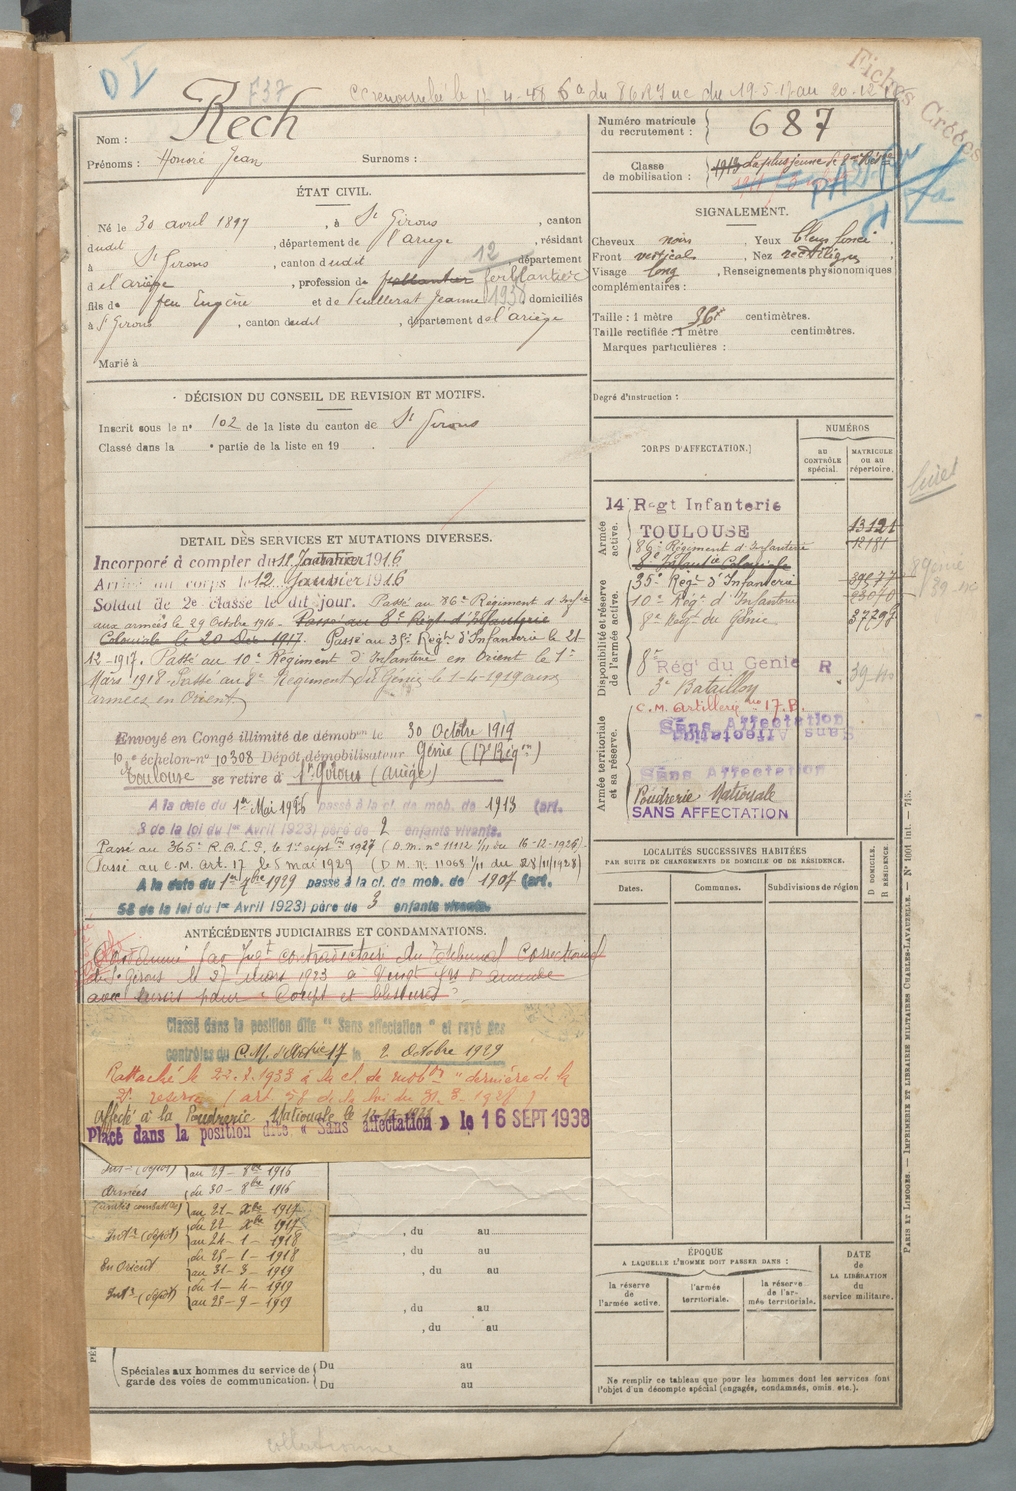 D I
F37
CC renouvelée le 17-4-48 6a du 86 RI UC du 19.5.17 au 20.12.17
Fiches Créées
Nom : Rech
Prénoms : Honoré Jean Surnoms :
ÉTAT CIVIL.
Né le 30 avril 1897, à St Girons, canton
dudit, département de l'ariège, résidant
à St Girons, canton dudit, département
12
d el'ariège, profession de ferblantier ferblantier
fils de feu Eugène et de Seuillerat Jeanne domiciliés
1938
à St Girons, canton dudit, département de l'ariège
Marié à
DÉCISION DU CONSEIL DE REVISION ET MOTIFS.
Inscrit sous le n° 102 de la liste du canton de St Girons
Classé dans la e partie de la liste en 19 .
DETAIL DES SERVICES ET MUTATIONS DIVERSES.
Incorporé à compter du 11 Janvier 1916
Arrivé au corps le 12 Janvier 1916
Soldat de 2e classe le dit jour. Passé au 86e Régiment d'Infie
aux armées le 29 Octobre 1916. Passé au 8e Régt d'Infanterie
Coloniale le 20 Déc 1917. Passé au 35e Régt d'Infanterie le 21-
12-1917. Passé au 10e Régiment d'Infanterie en Orient le 1er
Mars 1918. Passé au 8e Régiment du Génie le 1-4-1919 aux
armées en Orient
Envoyé en Congé illimité de démobon le 30 Octobre 1919
10e échelon-n° 10308 Dépôt démobilisateur Génie (17e Régon)
Toulouse se retire à St Girons (Ariège)
A la date du 1er Mai 1926 passé à la cl. de mob. de 1913 (art.
3 de la loi du 1er Avril 1923) père de 2 enfants vivants.
Passé au 365e R.A.L.P. le 1er septbre 1927 (D.M. n° 11112 1/11 du 16-12-1926)
Passé au C.M. Art. 17 le 5 mai 1929 (D.M. n. 11068 1/11 du 28/11/1928)
A la date du 1er 7bre 1929 passé à la cl. de mob. de 1907 (art.
58 de la loi du 1er Avril 1923) père de 3 enfants vivants.
ANTÉCÉDENTS JUDICIAIRES ET CONDAMNATIONS.
Condamné par Jugt contradictoire du Tribunal Correctionnel
de St Girons le 27 mars 1923 à Vingt frs d'amende
avec sursis pour « Coups et blessures ».
Classé dans la position dite " Sans affectation " et rayé des
contrôles du C.M. d'Artrie 17 le 2 Octobre 1929
Rattaché le 22.2.1933 à la cl. de mobon " dernière de la
2e réserve ( art. 58 de la loi du 31.3.1928 )
Affecté à la Poudrerie Nationale le
Placé dans la position dite « Sans affectation » le 16 SEPT 1938
Intr (dépôt) au 29 - 8bre 1916
Armées du 30 - 8bre 1916
(unités combattes) au 21 - Xbre 1917
Intr (dépôt) du 22 - Xbre 1917
au 24 - 1 - 1918
En Orient du 25 - 1 - 1918
au 31 - 3 - 1919
Intr (dépôt) du 1 - 4 - 1919
au 23 - 9 - 1919
, du au
, du au
, du au
, du au
Spéciales aux hommes du service de garde des voies de communication. Du au
Du au
Numéro matricule du recrutement : 687
Classe de mobilisation : 1913 La plus jeune de 2me Rése
SIGNALEMENT.
Cheveux noirs, Yeux bleus foncé,
Front vertical, Nez rectiligne,
Visage long, Renseignements physionomiques
complémentaires :
Taille : 1 mètre centimètres.
Taille rectifiée : 1 mètre centimètres.
Marques particulières :
Degré d'instruction :
CORPS D'AFFECTATION.
NUMÉROS
AU CONTRÔLE spécial.
MATRICULE OU AU répertoire.
Armée active.
14 Regt Infanterie
TOULOUSE 13121
86e Régiment d'Infanterie 12181
8e Infantie Coloniale
Disponibilité et réserve de l'armée active.
35e Régt d'Infanterie
10e Régt d'Infanterie 23070
8e Regt du Génie 37297
8e Régt du Genie R
3e Bataillon
Armée territoriale et sa réserve.
C.M. Artillerie no 17.B.
Sans Affectation
Sans Affectation
Sans Affectation
Poudrerie Nationale
SANS AFFECTATION
LOCALITÉS SUCCESSIVES HABITÉES
PAR SUITE DE CHANGEMENTS DE DOMICILE OU DE RÉSIDENCE.
D DOMICILE.
R RÉSIDENCE
Dates. Communes. Subdivisions de région
ÉPOQUE
A LAQUELLE L'HOMME DOIT PASSER DANS :
la réserve de l'armée active.
l'armée territoriale.
la réserve de l'armée territoriale.
DATE de LA LIBÉRATION du service militaire.
Ne remplir ce tableau que pour les hommes dont les services font
l'objet d'un décompte spécial (engagés, condamnés, omis, etc.).
PARIS ET LIMOGES. — IMPRIMERIE ET LIBRAIRIE MILITAIRES CHARLES-LAVAUZELLE. — N° 1001 int. — 715.
collationné